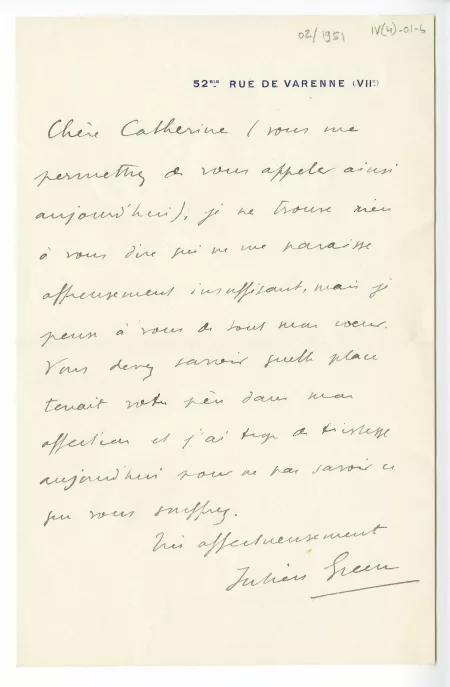 02/1951 IV(4)-01-6
52BIS RUE DE VARENNE (VIIE)
Chère Catherine (vous me
permettez de vous appeler ainsi
aujourd'hui), je ne trouve rien
à vous dire qui ne me paraisse
affreusement insuffisant, mais je
pense à vous de tout mon cœur.
Vous devez savoir quelle place
tenait votre père dans mon
affection et j'ai trop de tristesse
aujourd'hui pour ne pas savoir ce
que vous souffrez.
Très affectueusement
Julien Green